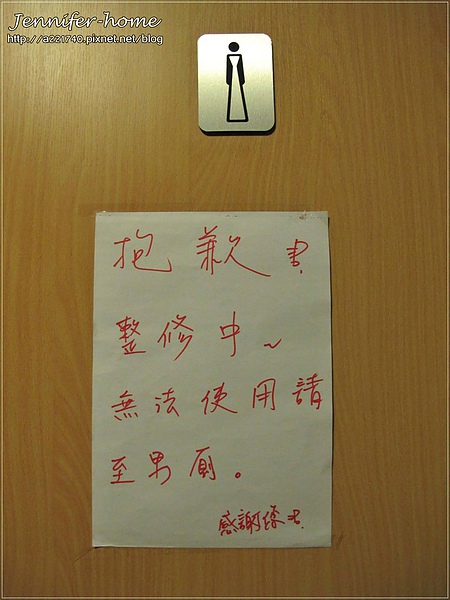 Jennifer-home
http://a221740.pixnet.net/blog
抱歉
整修中~
無法使用請
至男廁。
感謝